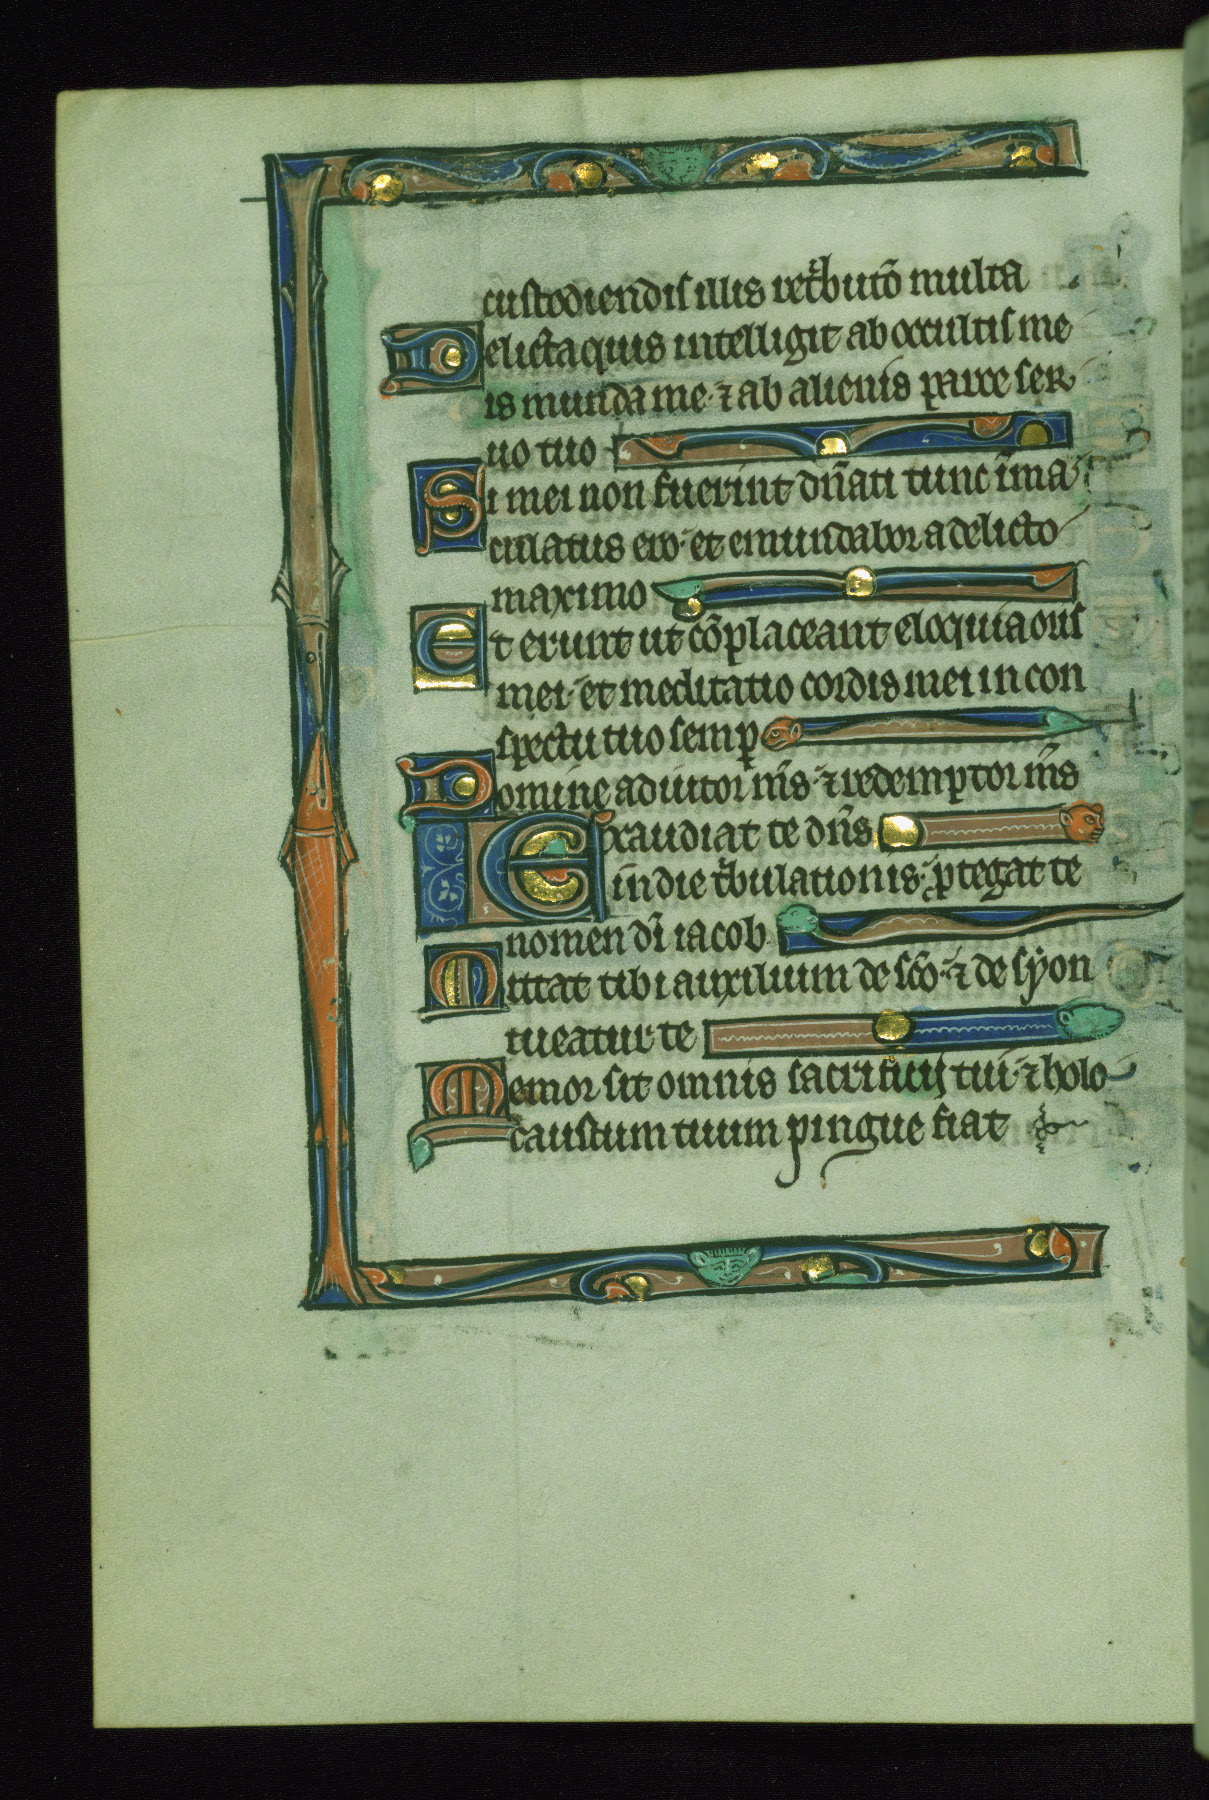 custodiendis illis ret'butõ multa
Delicta quis intelligit ab occultis me
is munda me · ⁊ ab alienis parce ser
uo tuo
Si mei non fuerint dñati tunc ĩma
culatus ero · et emundabor a delicto
maximo
Et erunt ut cõplaceant eloquia oris
mei · et meditatio cordis mei in con
spectu tuo semp̲
Domine adiutor m̃s · ⁊ redemptor m̃s
Exaudiat te dñs
in die t'bulationis · ꝓtegat te
nomen dĩ iacob
Mittat tibi auxilium de sc̃o · ⁊ de syon
tueatur te
Memor sit omnis sacrificij tui · ⁊ holo
caustum tuum pingue fiat